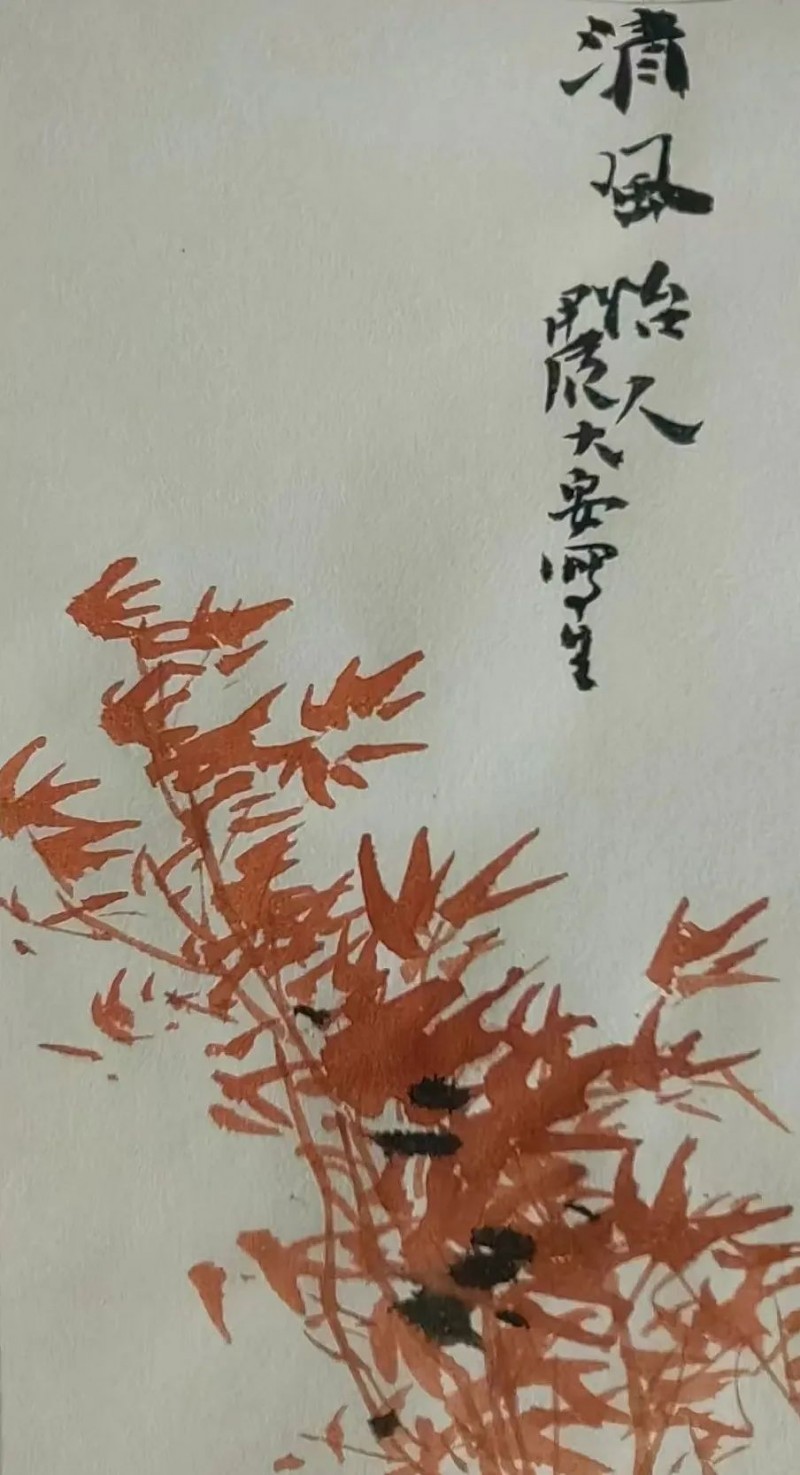 清风怡人
甲辰大安写生